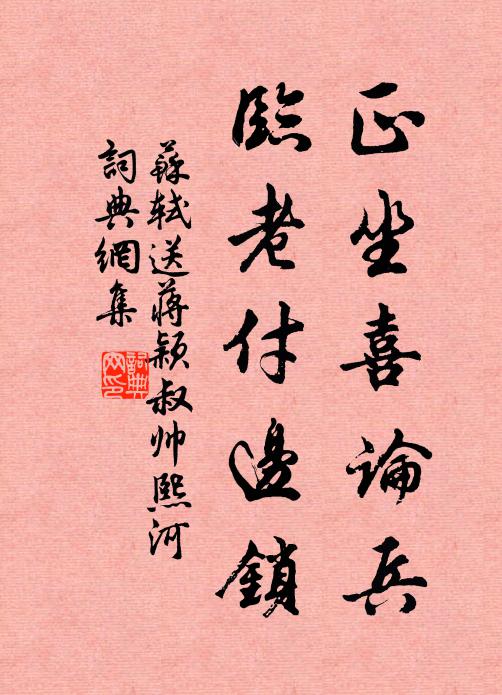 正坐喜論兵
臨老付邊鎖
蘇軾送蔣颖叔帅熙河
詞典網集
詞典網印